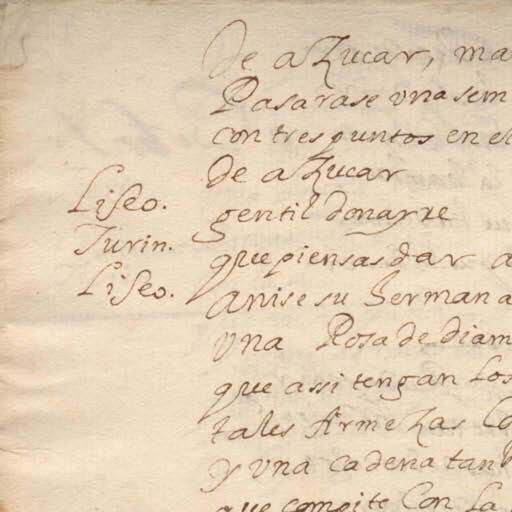 de azucar, ma
Pasarase vna sem
con tres puntos en el
de azucar
Liseo. gentil donayre
Turin. que piensas dar a
Liseo. A nise su hermana
vna Rosa de diam
que assi tengan los
tales firmezas Co
y vna cadena tan
que compite con la